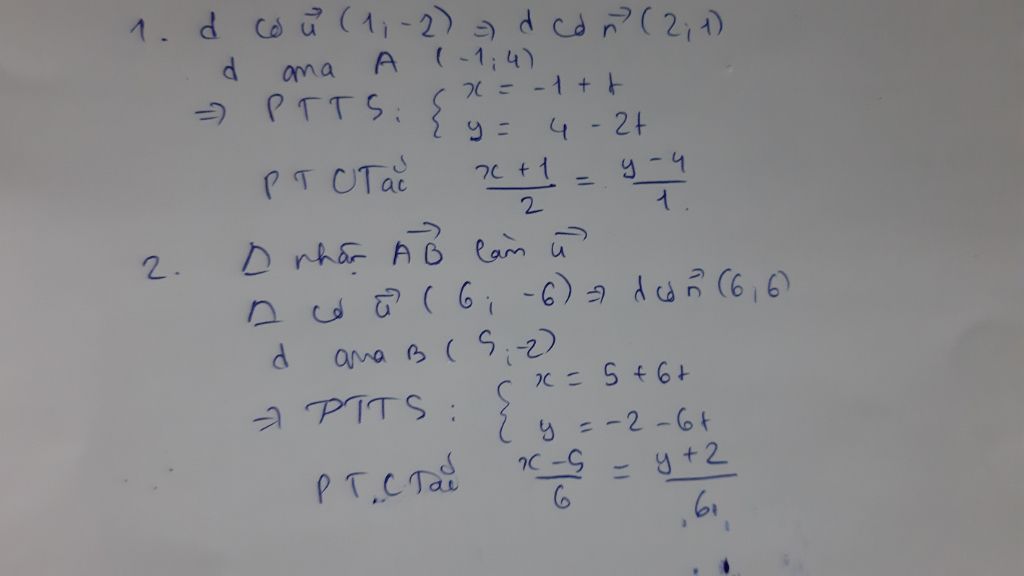 1. d có u→ (1; -2) ⇒ d có n→ (2; 1)
d qua A (-1; 4)
⇒ PTTS: { x = -1 + t
y = 4 - 2t
PT CTắc (x + 1)/2 = (y - 4)/1.
2. Δ nhận AB→ làm u→
Δ có u→ (6; -6) ⇒ d có n→ (6; 6)
d qua B (5; -2)
⇒ PTTS: { x = 5 + 6t
y = -2 - 6t
PT CTắc (x - 5)/6 = (y + 2)/6